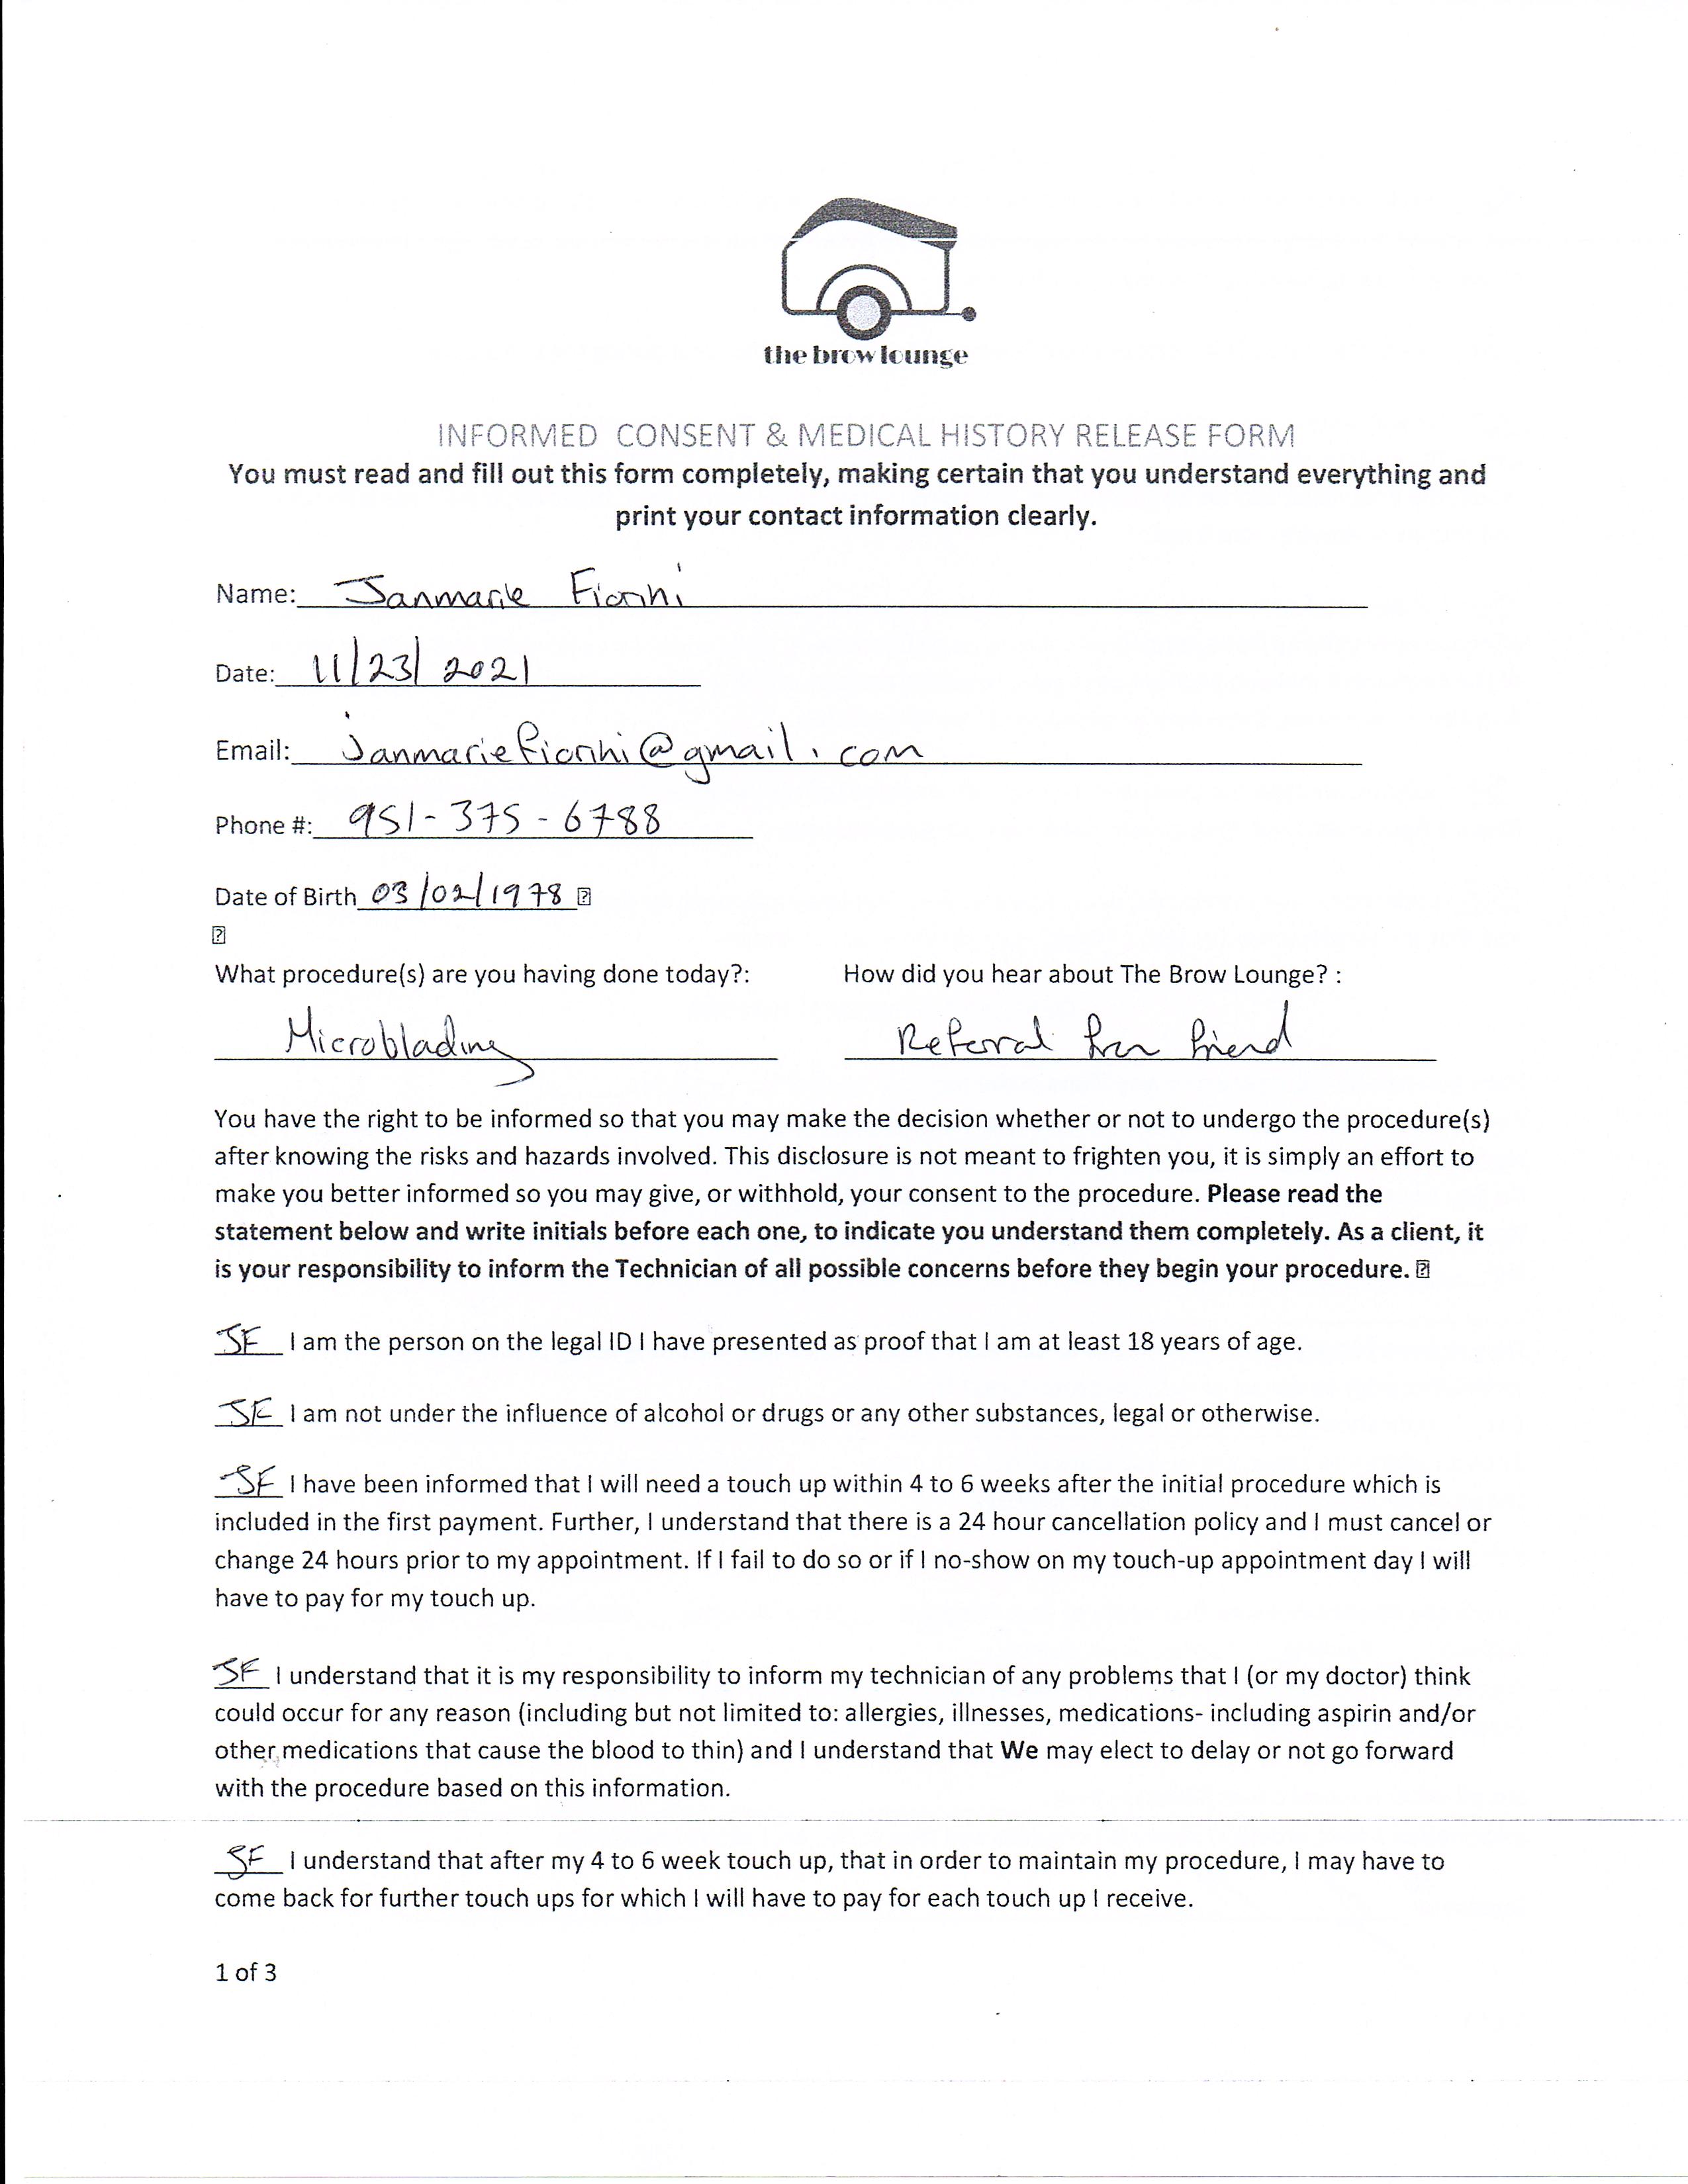 the brow lounge
INFORMED CONSENT & MEDICAL HISTORY RELEASE FORM
You must read and fill out this form completely, making certain that you understand everything and
print your contact information clearly.
Name: Janmarie Fiorini
Date: 11/23/2021
Email: janmariefiorini@gmail.com
Phone #: 951-375-6788
Date of Birth 03/02/1978
What procedure(s) are you having done today?: How did you hear about The Brow Lounge? :
Microblading Referral from friend
You have the right to be informed so that you may make the decision whether or not to undergo the procedure(s)
after knowing the risks and hazards involved. This disclosure is not meant to frighten you, it is simply an effort to
make you better informed so you may give, or withhold, your consent to the procedure. Please read the
statement below and write initials before each one, to indicate you understand them completely. As a client, it
is your responsibility to inform the Technician of all possible concerns before they begin your procedure.
JF I am the person on the legal ID I have presented as proof that I am at least 18 years of age.
JF I am not under the influence of alcohol or drugs or any other substances, legal or otherwise.
JF I have been informed that I will need a touch up within 4 to 6 weeks after the initial procedure which is
included in the first payment. Further, I understand that there is a 24 hour cancellation policy and I must cancel or
change 24 hours prior to my appointment. If I fail to do so or if I no-show on my touch-up appointment day I will
have to pay for my touch up.
JF I understand that it is my responsibility to inform my technician of any problems that I (or my doctor) think
could occur for any reason (including but not limited to: allergies, illnesses, medications- including aspirin and/or
other medications that cause the blood to thin) and I understand that We may elect to delay or not go forward
with the procedure based on this information.
JF I understand that after my 4 to 6 week touch up, that in order to maintain my procedure, I may have to
come back for further touch ups for which I will have to pay for each touch up I receive.
1 of 3